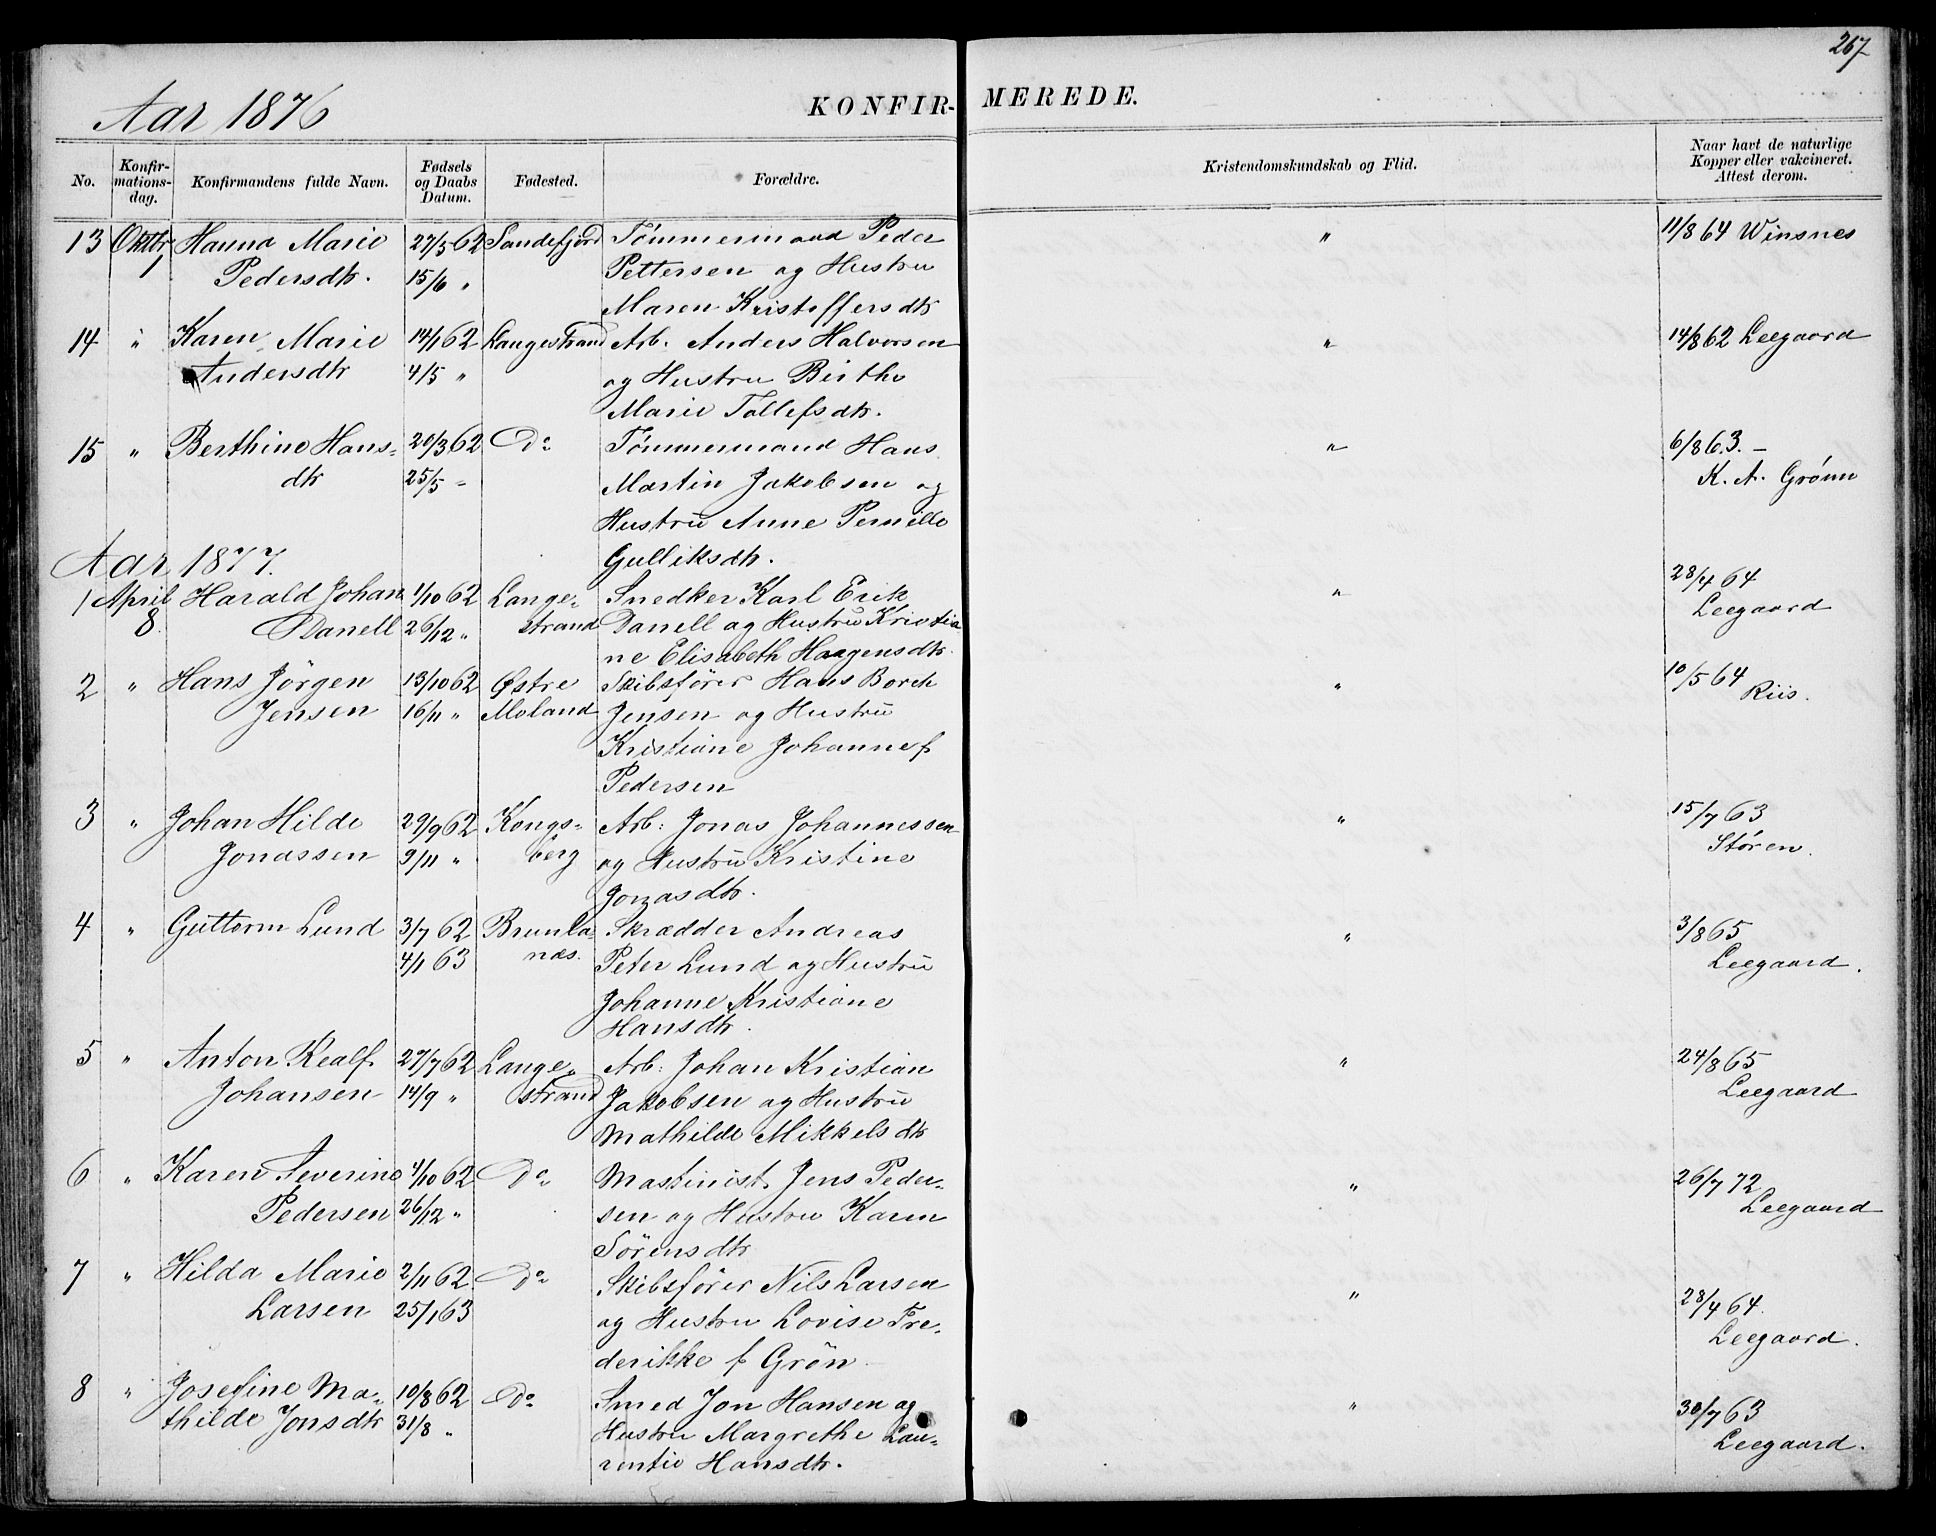 267
Aar 1876
KONFIR- MEREDE.
No.
Konfir-
mations-
dag.
Konfirmandens fulde Navn.
Fødsels
og Daabs
Datum.
Fødested.
Forældre.
Kristendomskundskab og Flid.
Naar havt de naturlige
Kopper eller vakcineret.
Attest derom.
13 Oktbr Hanna Marie 27/5 62 Sandefjord Tømmermand Peder " 11/8 64 Winsnes
1 Pedersdtr. 15/6 " Pettersen og Hustru
Maren Kristoffersdtr
14 " Karen Marie 14/1 62 Langestrand Arb. Anders Halvorsen " 14/8 62 Leegaard
Andersdtr 4/5 " og Hustru Birthe
Marie Tollefsdtr.
15 " Berthine Hans- 20/3 62 Do Tømmermand Hans " 6/8 63. -
dtr 25/5 - Martin Jakobsen og K. A. Grønn
Hustru Anne Pernille
Aar 1877. Gulliksdtr.
1 April Harald Johan 1/10 62 Lange- Snedker Karl Erik " 28/4 64
8 Danell 26/12 " strand Danell og Hustru Kristia Leegaard
ne Elisabeth Haagensdtr.
2 " Hans Jörgen 13/10 62 Østre Skibsförer Hans Borch " 10/5 64
Jensen 16/11 " Moland Jensen og Hustru Riis.
Kristiane Johanne f
Pedersen
3 " Johan Hilde 29/9 62 Kongs- Arb: Jonas Johannessen " 15/7 63
Jonassen 9/11 " berg og Hustru Kristine Støren.
Jonasdtr.
4 " Guttorm Lund 3/7 62 Brunla- Skrædder Andreas " 3/8 65
4/1 63 næs. Peter Lund og Hustru Leegaard.
Johanne Kristiane
Hansdtr.
5 " Anton Realf 27/7 62 Lange- Arb: Johan Kristian " 24/8 65
Johansen 14/9 " strand Jakobsen og Hustru Leegaard
Mathilde Mikkelsdtr
6 " Karen Severine 4/10 62 Do Mastinist Jens Peder- " 26/7 72
Pedersen 26/12 " sen og Hustru Karen Leegaard
Sörensdtr
7 " Hilda Marie 2/11 62 Do Skibsförer Nils Larsen " 28/4 64.
Larsen 25/1 63 og Hustru Lovise Fre- Leegaard.
derikke f Grön
8 " Josefine Ma- 10/8 62 Do Smed Jon Hansen og " 30/7 63
thilde Jonsdtr 31/8 " Hustru Margrethe Lau- Leegaard.
rentie Hansdtr.